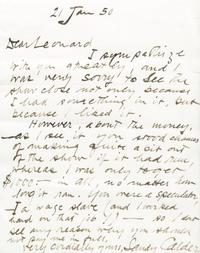 21 Jan 50
Dear Leonard,
I sympathize
with you greatly, and
was very sorry to see the
show close not only because
I had something in it, but
because I liked it.
However, about the money,
as I see it you stood chances
of making quite a bit out
of the show if it had run,
whereas I was only to get
$1000 — in all, no matter how
long it ran. You were a speculator,
I a wage slave (and I worked
hard on that job!) — so I don't
see any reason why you should
not pay me in full.
Very cordially yours, Sandy Calder